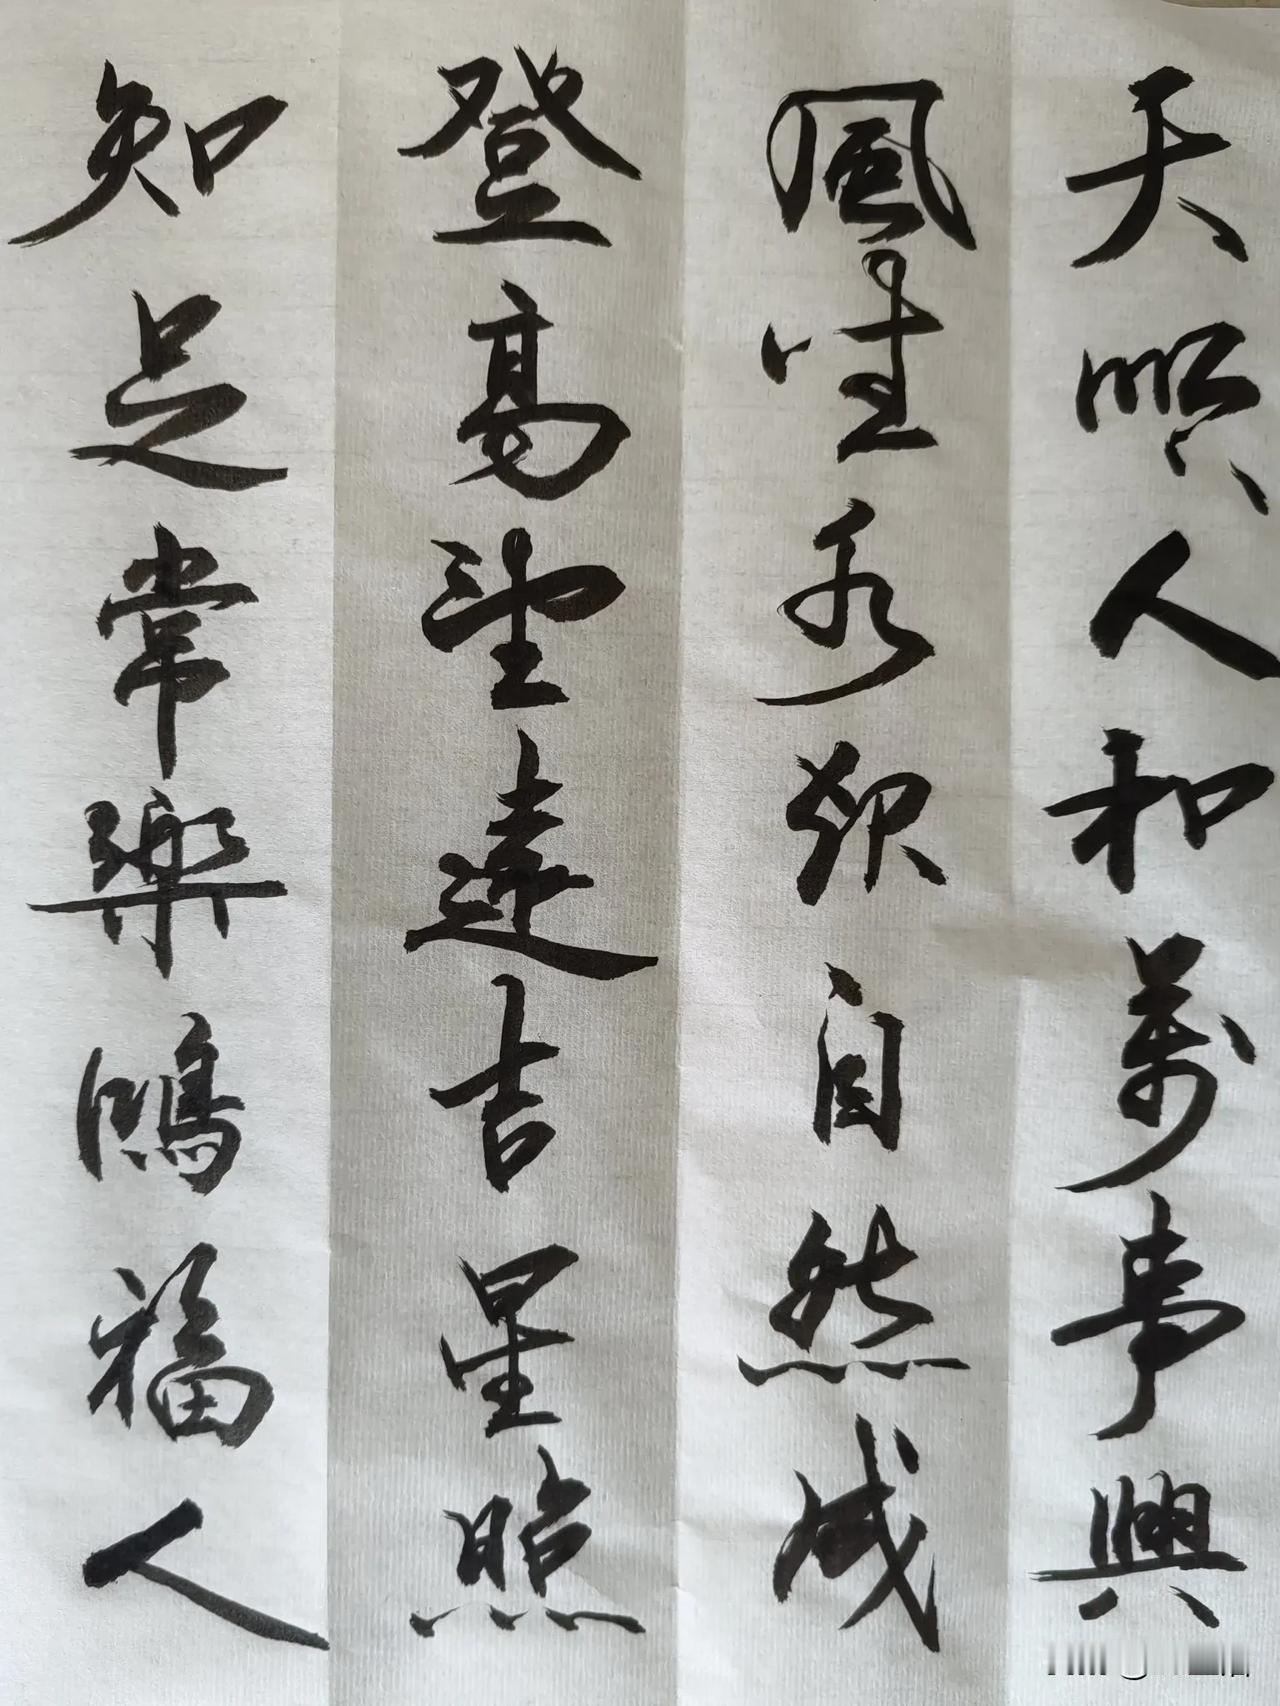 天順人和萬事興
風生水起自然成
登高望遠吉星照
知足常樂鴻福人